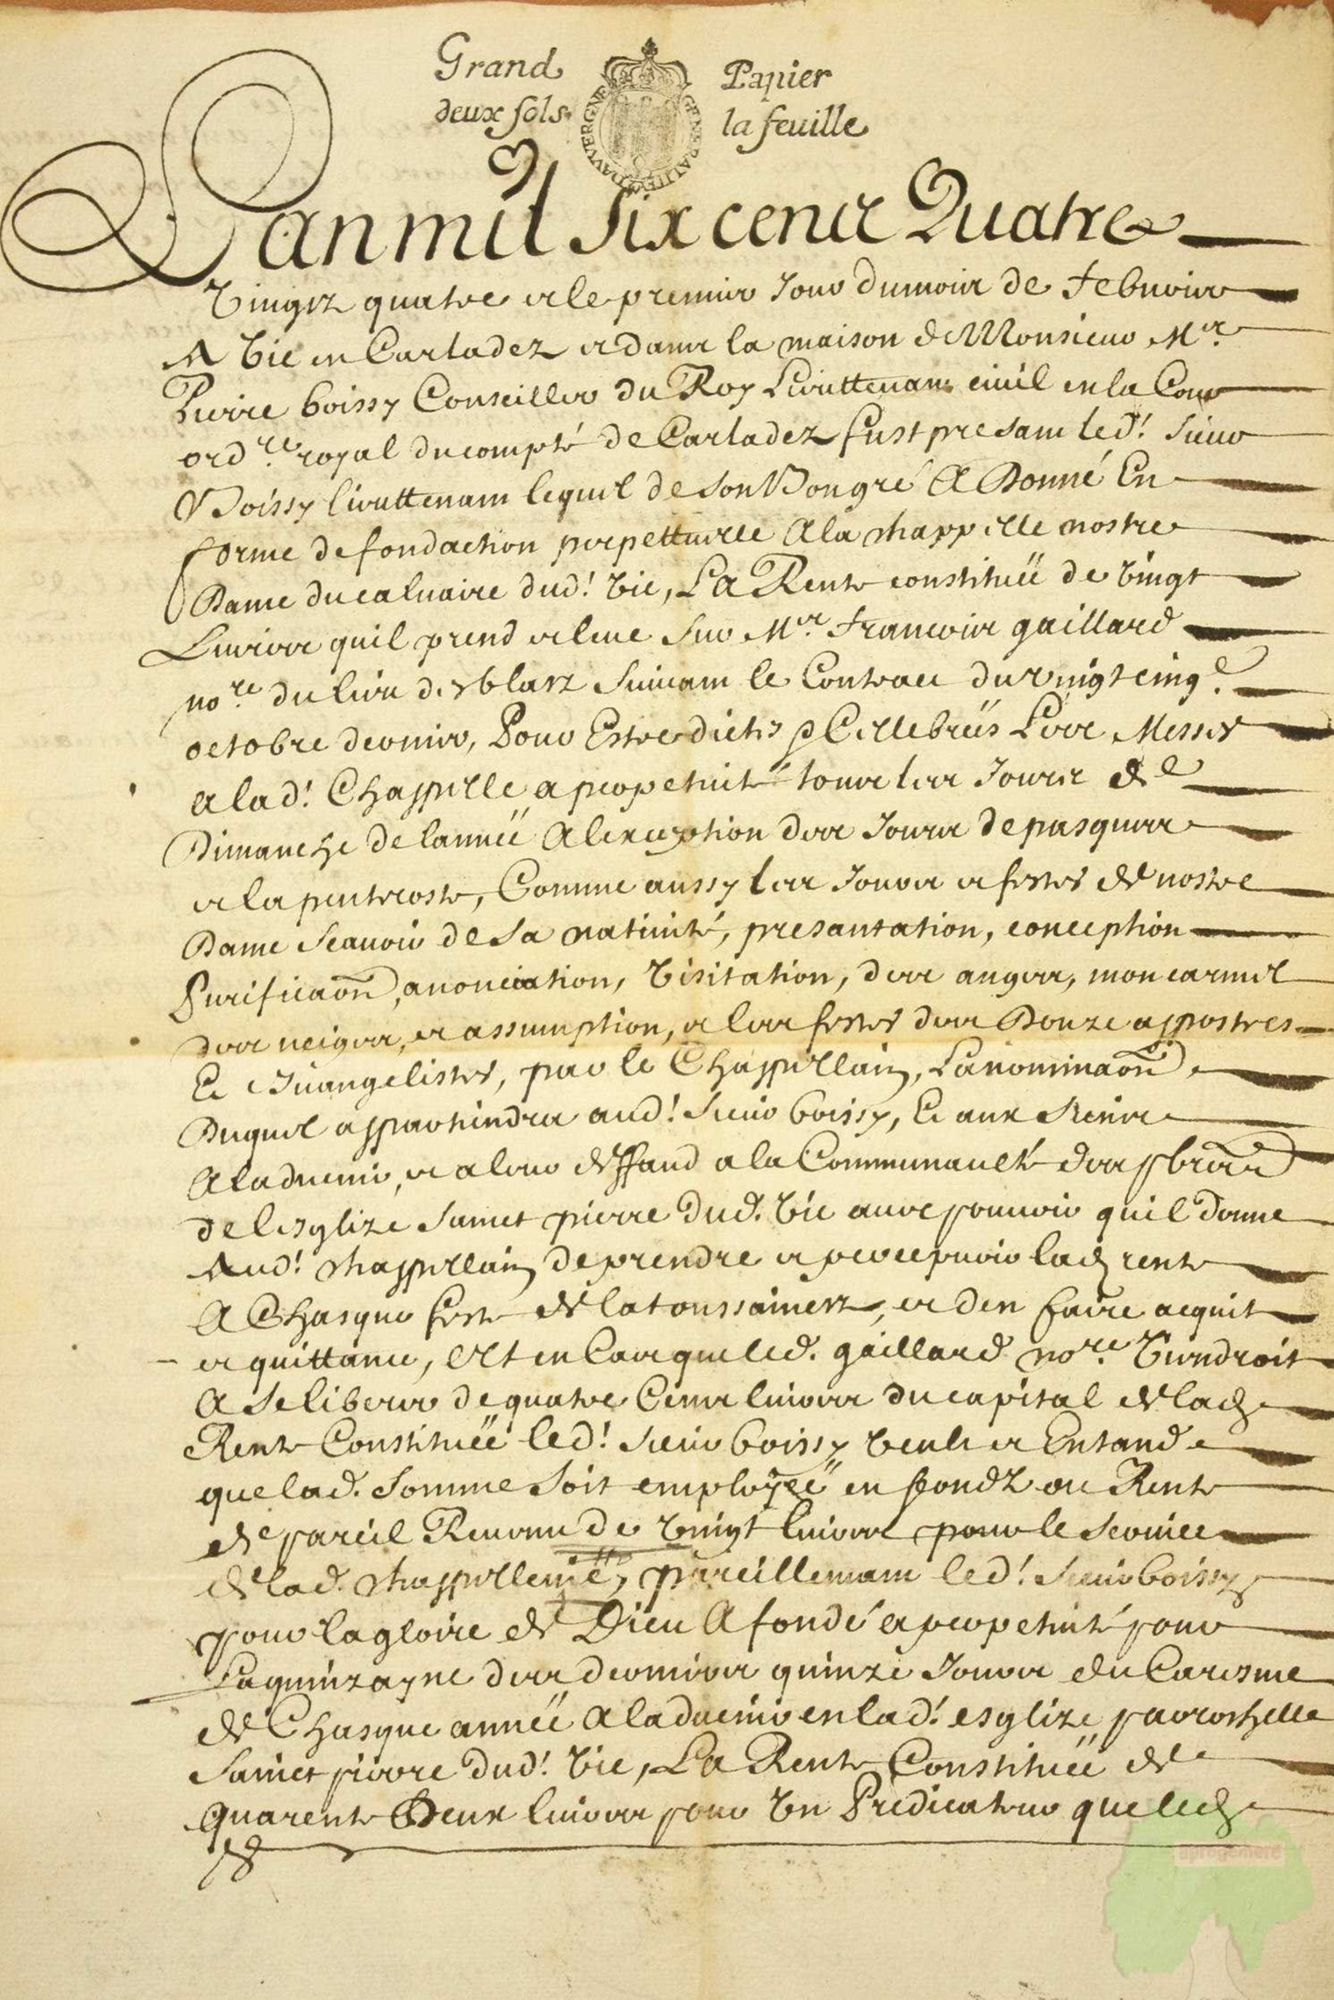 Grand Papier
deux sols la feuille
GENERALITE DAUVERGNE
Lan mil six cens Quatre
Vingtz quatre et le premier Jour du mois de febvrier
A Vic en Carladez et dans la maison de Monsieur Mr.
Pierre boissy Conseiller du Roy Lieuttenant civil en la Cour
ordre. royal du compté de Carladez fust presant led! sieur
Boissy lieuttenant lequel de son Bon gré A Donné En
forme de fondaction perpettuelle A la chappelle nostre
Dame du calvaire dud! Vic, La Rente constituëe de vingt
Livres quil prend et leve sur Mr. francois gaillard
nore. du lieu de suivant le Contract du vingt cinqe.
octobre dernier, Pour Estre dictes et Cellebréës Les Messes
a lad! Chappelle a perpetuité tous les Jours de
Dimanche de lannëe A lexception des Jours de pasques
et la penthecoste, Comme aussy les Jours et festes de nostre
Dame scavoir de sa nativité, presantation, conception
Purificaon, anonciation, Visitation, des anges, mon carmel
des neiges, et assumption, et les festes des Douze appostres
Et Evangelistes, par le Chappellain, La nominaon
Duquel appartiendra aud! sieur boissy, Et aux siens
A ladvenir, et a leur deffaud a la Communaulté des pbres
de lesglize sainct pierre dud. Vic avec pouvoir quil donne
Aud! chappellain de prendre et percepvoir lad rente
A Chasque feste de la toussainctz, et den faire acquit
et quittance, Et en Cas que led. gaillard nore. Viendroit
A se liberer de quatre Cens livres du capital de lad
Rente Constituëe led! sieur boissy veult et Entand
que lad. somme soit employëe en fondz ou Rente
de pareil Revenu de vingt livres pour le service
de lad. chappellenie, pareillemant led! sieur boissy
pour la gloire de Dieu A fondé a perpetuité pour
La quinzayne des derniers quinze Jours du Caresme
de Chasque annëe A ladvenir en lad! esglize parrochelle
sainct pierre dud! Vic, La Rente Constituëe de
quarente Deux livres pour Un Predicateur que led
aprogemere